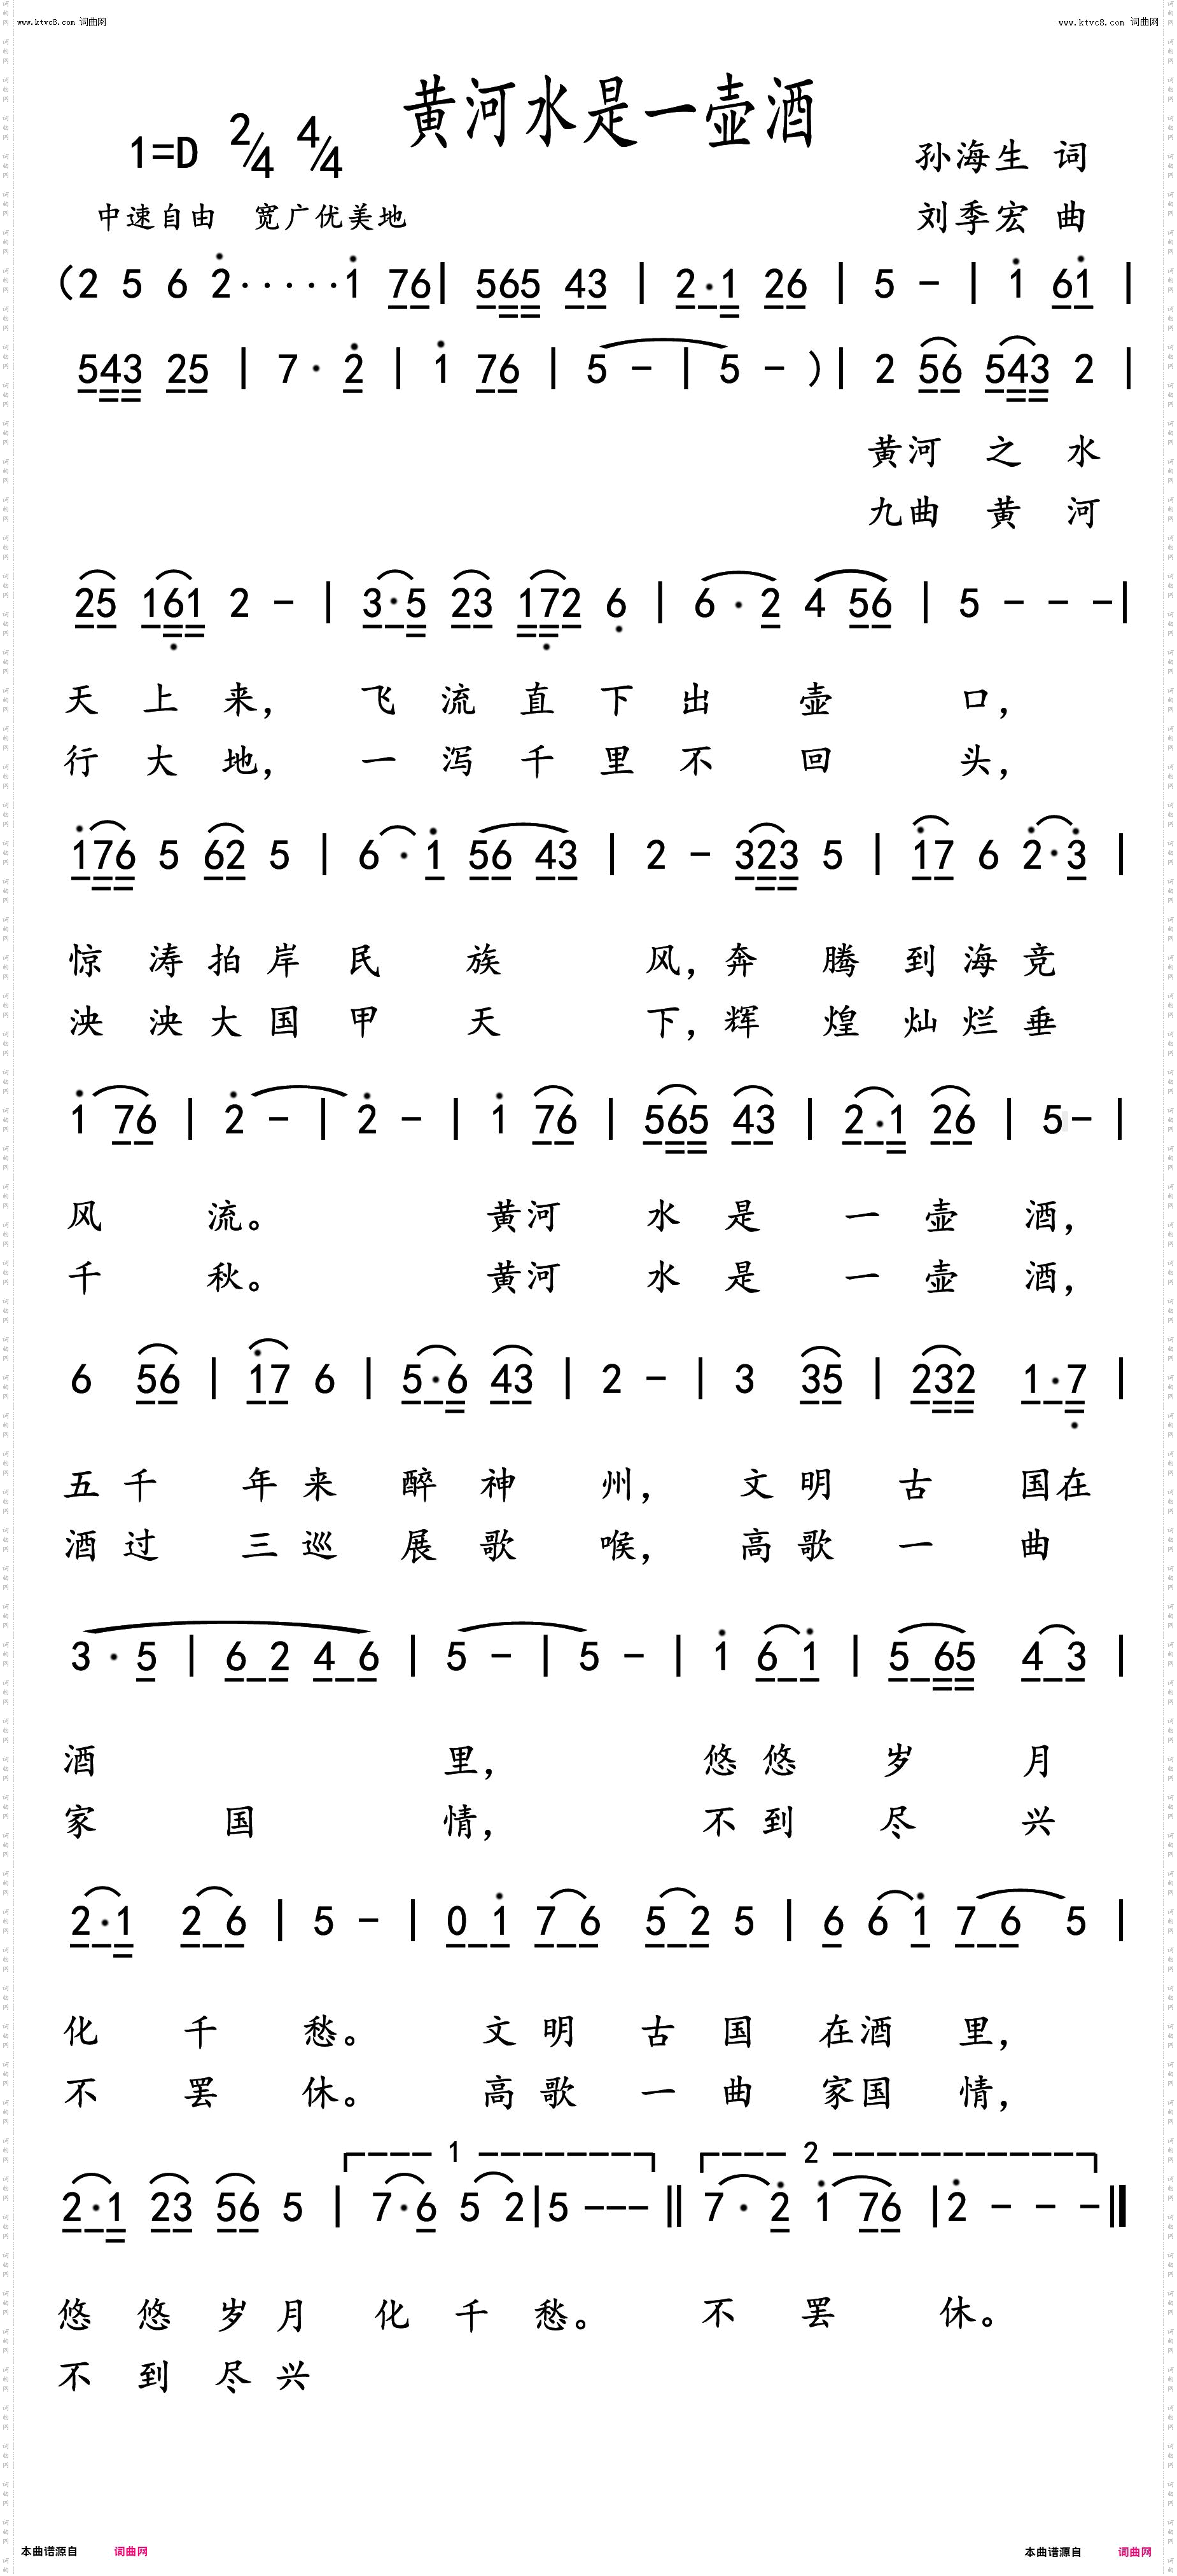 www.ktvc8.com 词曲网 www.ktvc8.com 词曲网
黄河水是一壶酒
1=D 2/4 4/4
孙海生 词
中速自由 宽广优美地
刘季宏 曲
(2 5 6 2·····1 76| 565 43 | 2·1 26 | 5 - | 1 61 |
543 25 | 7· 2 | 1 76 | 5 - | 5 - )| 2 56 543 2 |
黄河 之 水
九曲 黄 河
25 161 2 - | 3·5 23 172 6 | 6·2 4 56 | 5 - - -|
天 上 来, 飞 流 直 下 出 壶 口,
行 大 地, 一 泻 千 里 不 回 头,
176 5 62 5 | 6·1 56 43 | 2 - 323 5 | 17 6 2·3 |
惊 涛 拍 岸 民 族 风, 奔 腾 到 海 竞
泱 泱 大 国 甲 天 下, 辉 煌 灿 烂 垂
1 76 | 2 - | 2 - | 1 76 | 565 43 | 2·1 26 | 5- |
风 流。 黄河 水 是 一 壶 酒,
千 秋。 黄河 水 是 一 壶 酒,
6 56 | 17 6 | 5·6 43 | 2 - | 3 35 | 232 1·7 |
五 千 年 来 醉 神 州, 文 明 古 国在
酒 过 三 巡 展 歌 喉, 高 歌 一 曲
3·5 | 6 2 4 6 | 5 - | 5 - | 1 6 1 | 5 65 4 3 |
酒 里, 悠 悠 岁 月
家 国 情, 不 到 尽 兴
2·1 2 6 | 5 - | 0 1 7 6 5 2 5 | 6 6 1 7 6 5 |
化 千 愁。 文 明 古 国 在酒 里,
不 罢 休。 高 歌 一 曲 家国 情,
1 2
2·1 23 56 5 | 7·6 5 2|5 ---‖ 7·2 1 76 |2 - - -‖
悠 悠 岁 月 化 千 愁。 不 罢 休。
不 到 尽 兴
本曲谱源自 词曲网 本曲谱源自 词曲网